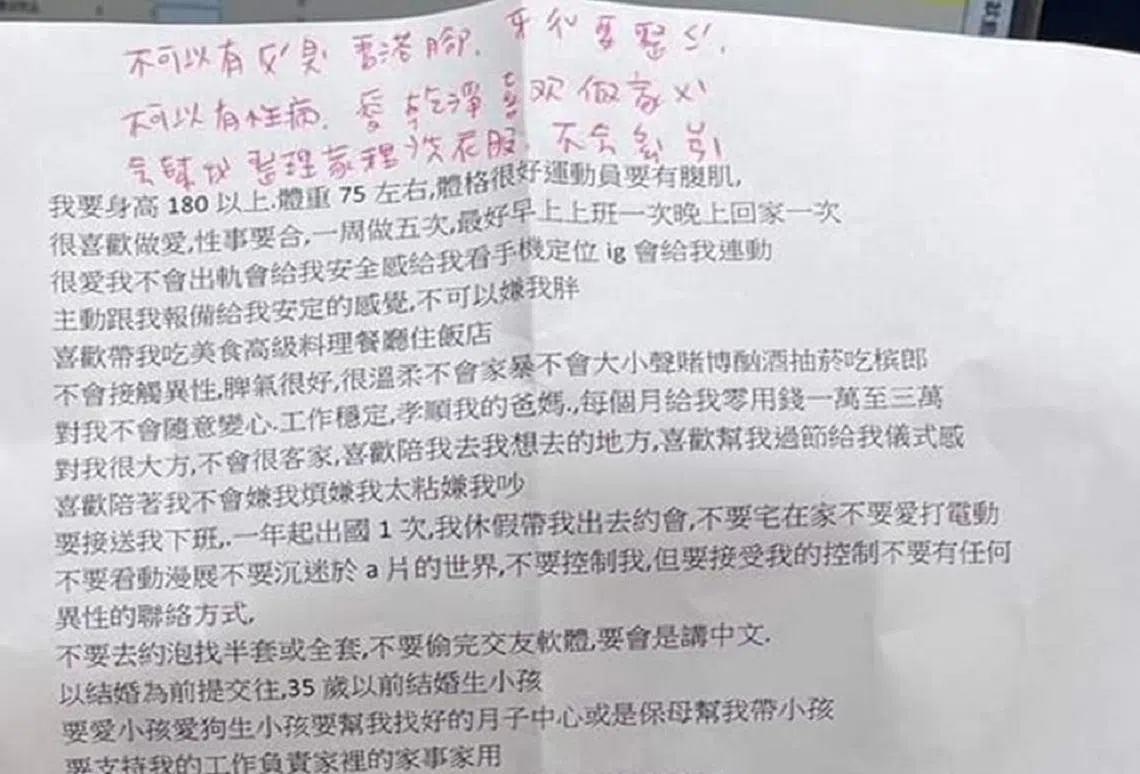 不可以有口臭 香港腳. 牙和要整ㄑ.
不可以有性病. 愛乾淨 喜欢做家ㄨ
會 整理家裡 洗衣服. 不會
我要身高 180 以上.體重 75 左右,體格很好運動員要有腹肌,
很喜歡做愛,性事要合,一周做五次,最好早上上班一次晚上回家一次
很愛我不會出軌會給我安全感給我看手機定位 ig 會給我連動
主動跟我報備給我安定的感覺,不可以嫌我胖
喜歡帶我吃美食高級料理餐廳住飯店
不會接觸異性,脾氣很好,很溫柔不會家暴不會大小聲賭博酗酒抽菸吃檳郎
對我不會隨意變心.工作穩定,孝順我的爸媽.,每個月給我零用錢一萬至三萬
對我很大方,不會很客家,喜歡陪我去我想去的地方,喜歡幫我過節给我儀式感
喜歡陪著我不會嫌我煩嫌我太粘嫌我吵
要接送我下班,.一年起出國 1 次,我休假帶我出去約會,不要宅在家不要愛打電動
不要看動漫展不要沉迷於 a 片的世界,不要控制我,但要接受我的控制不要有任何
異性的聯絡方式,
不要去約泡找半套或全套,不要偷完交友軟體,要會是講中文.
以結婚為前提交往,35 歲以前结婚生小孩
要愛小孩愛狗生小孩要幫我找好的月子中心或是保母幫我帶小孩
要支持我的工作負責家裡的家事家用